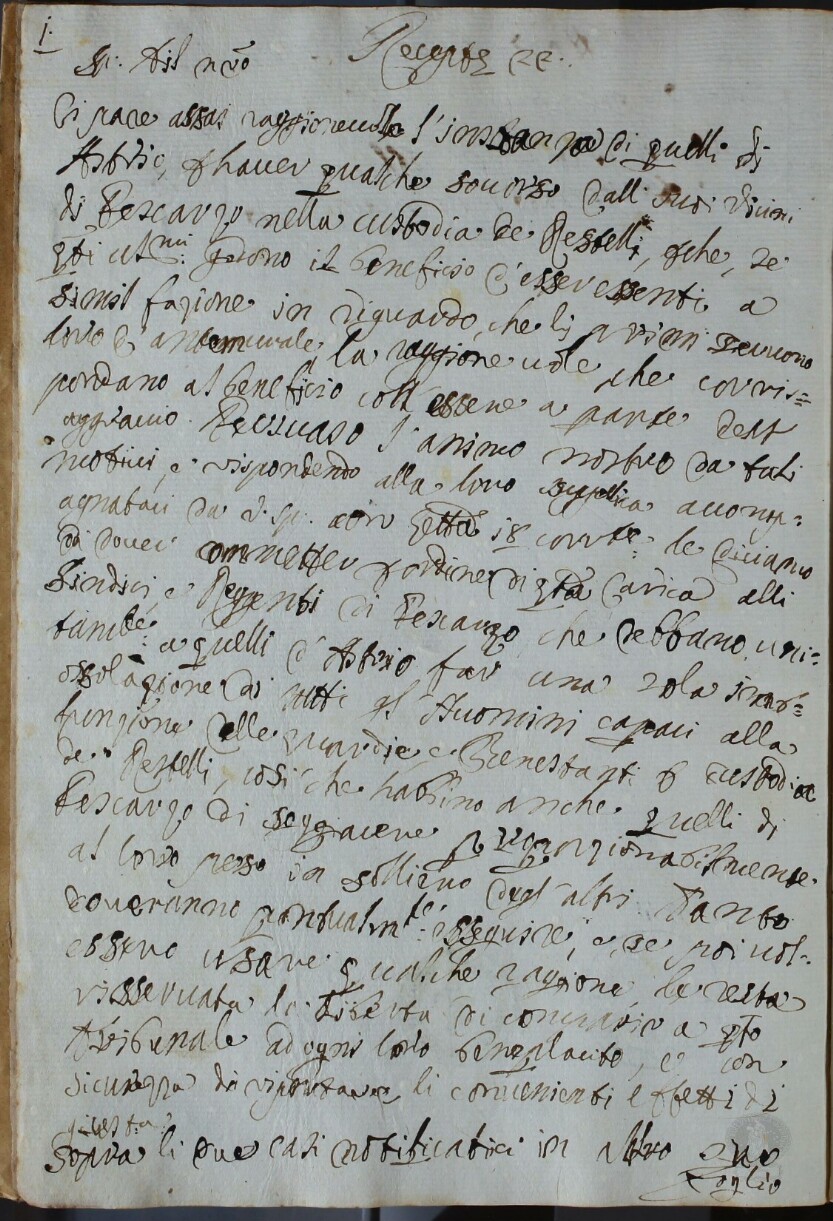 1.
Recepta
Ci pare assai raggionevole l'instanza di quelli di
Astrio, d'haver qualche socorso dall suoi vicini
di Pescarzo nella custodia de Restelli, che, se
godono il beneficio d'esser essenti a
simil fazione in riguardo, che li primi servono
loro d'antemurale, la raggione vole che corris=
pondano al beneficio coll'essere a parte dell
aggravio. Persuaso l'animo nostro da tali
motivi, e rispondendo alla loro supplica accomp=
agnataci da V.S. con 18 corrte: le diciamo
di dover commetter d'ordine di qta Carica alli
Sindici, e Reggenti di Pescarzo che debbano uni=
tamte: a quelli d'Astrio far una sola
di tutti gl'Huomini capaci alla
funzione delle guardie, e Benestanti custodia
de Restelli, così che habbino anche quelli di
Pescarzo di soggiacere proporzionabilmente
al loro peso in sollievo degl'altri. Tanto
doveranno pontualmte: essequire, e, se poi vol=
essero usare qualche ragione, le resta
risservata la libertà di comparir a qto
Tribunale ad ogni loro beneplacito, e con
sicurezza di riportarne li convenienti effetti di
questa
Sopra li due casi notificatici in altro suo
foglio